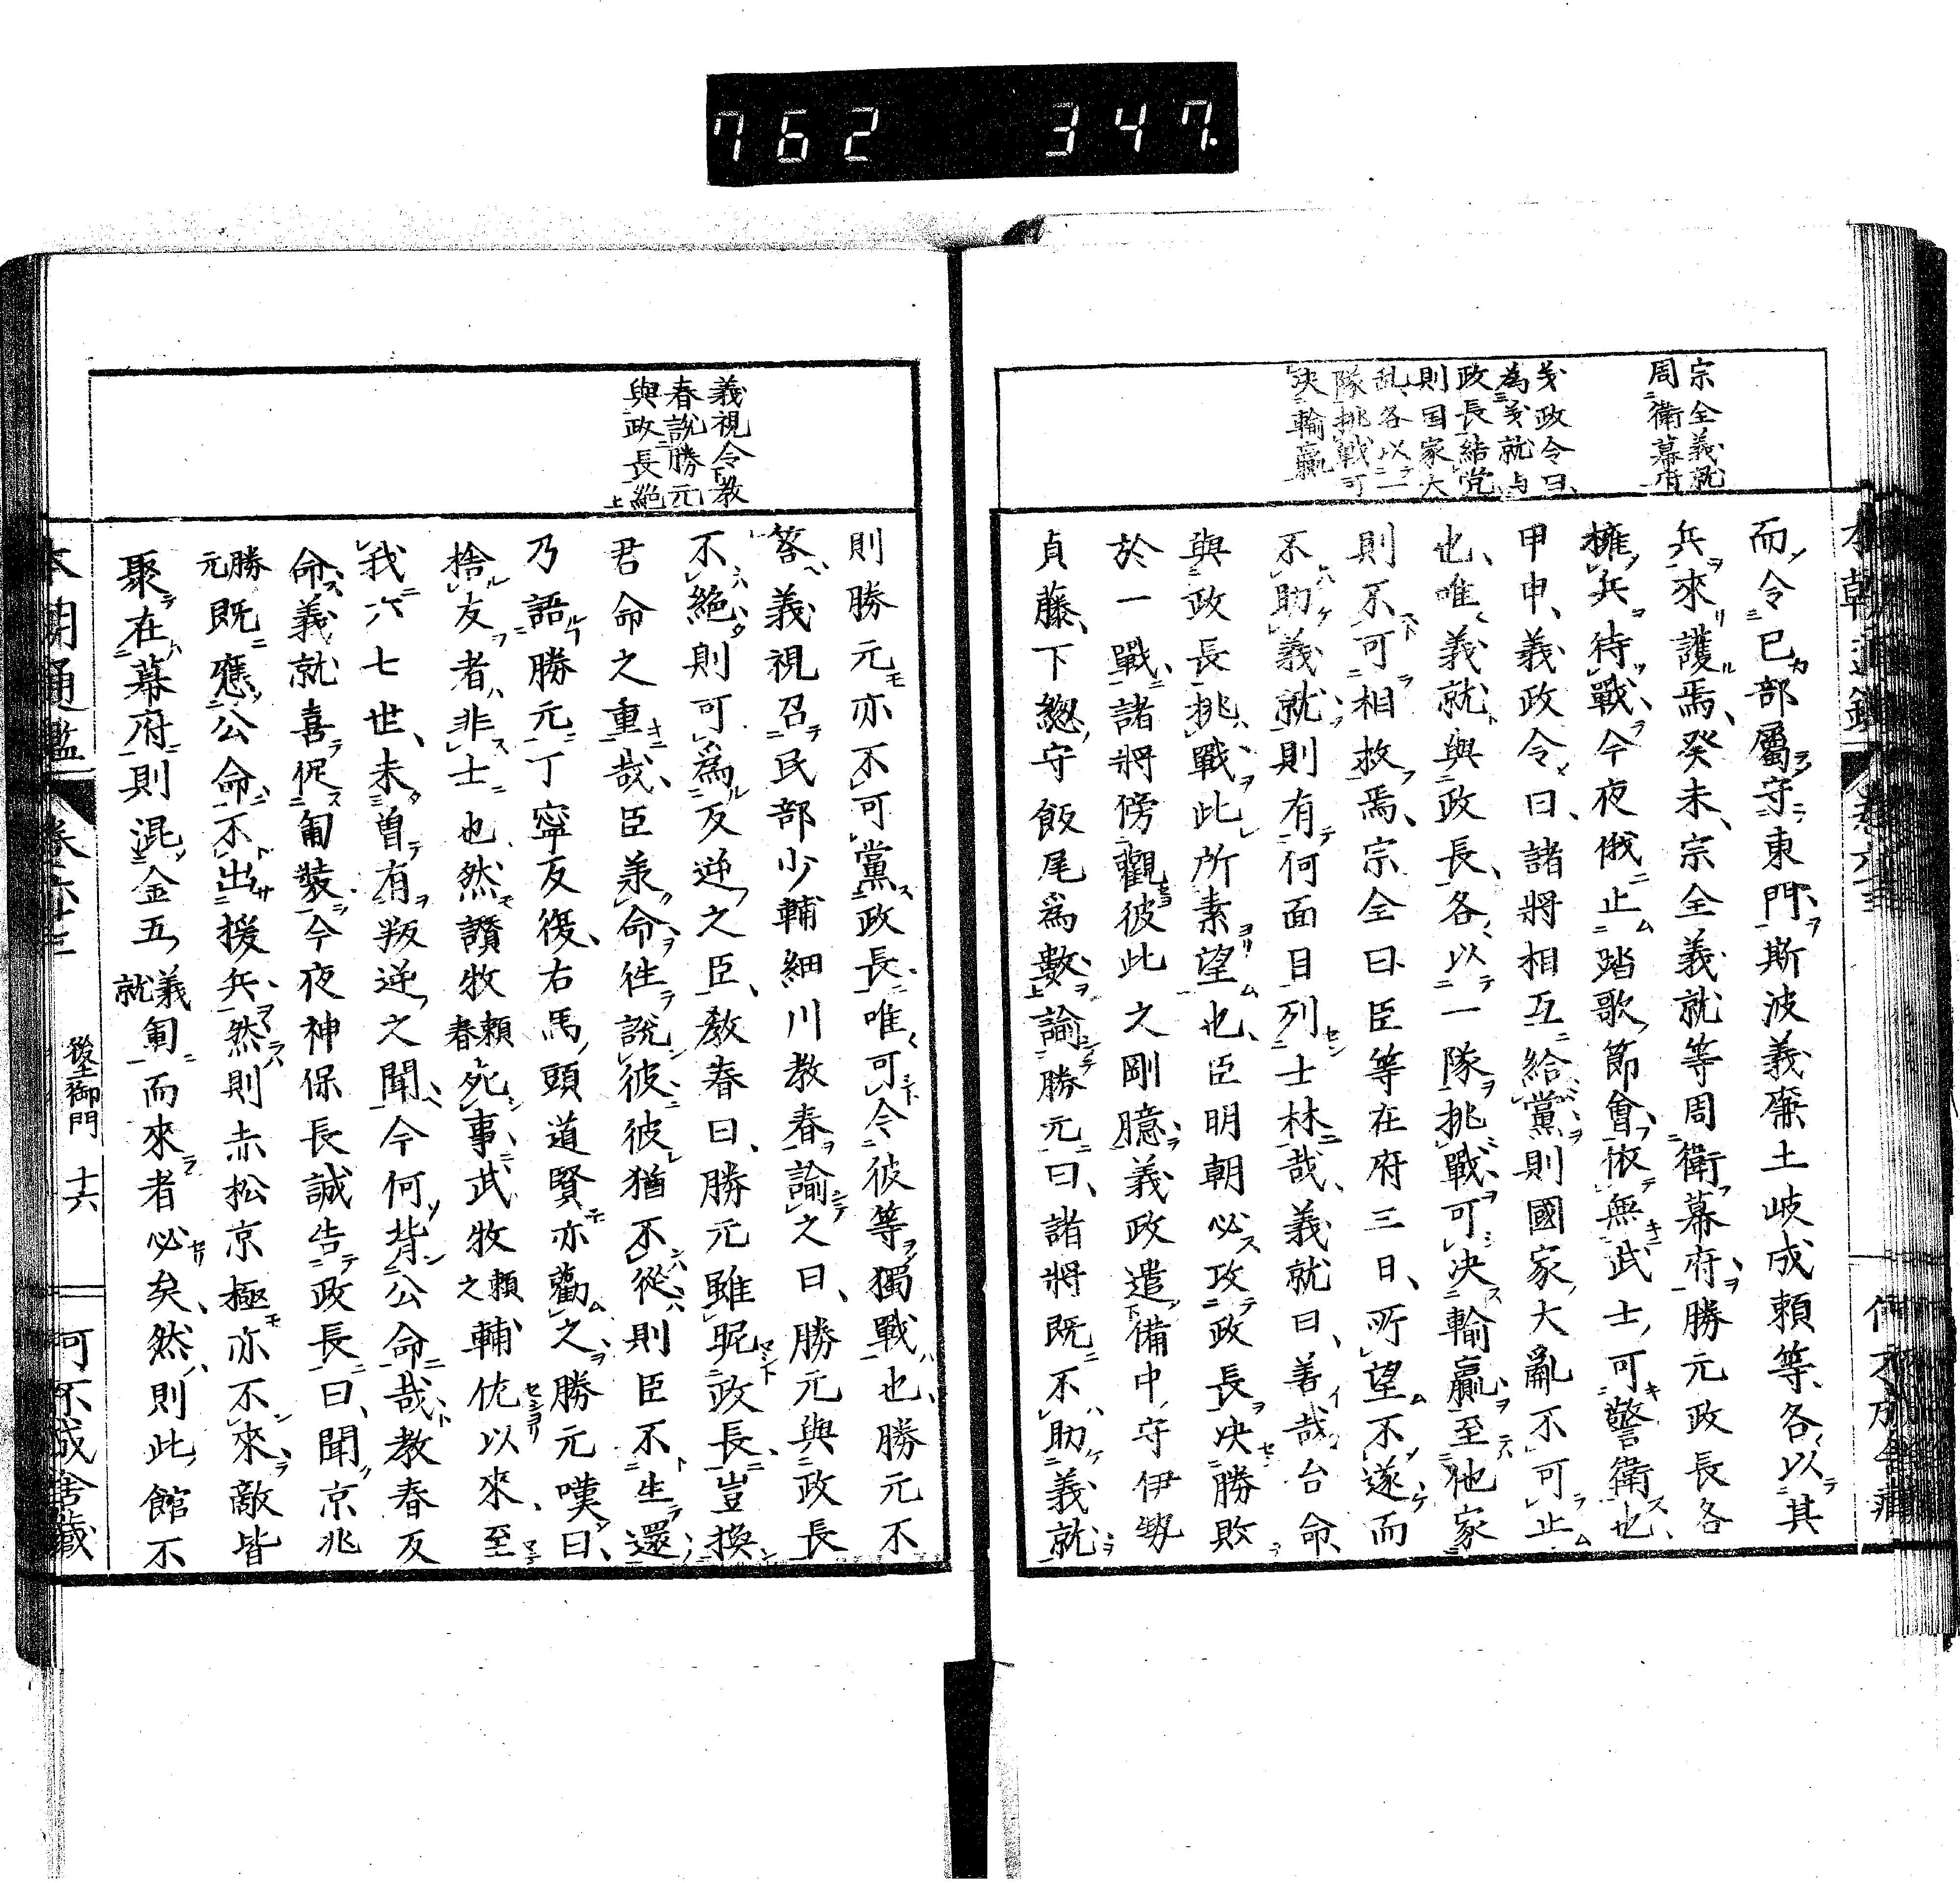 762 347
宗全義就
周衛幕府
義政令曰
為義就与
政長結党
則国家大
乱各以一
隊挑戦可
決輸贏
而令已部屬守東門斯波義廉土岐成頼等各以其
兵來護焉癸未宗全義就等周衛幕府勝元政長各
擁兵待戰今夜俄止踏歌節會依無武士可警衛也
甲申義政令曰諸將相互給黨則國家大亂不可止
也唯義就與政長各以一隊挑戰可决輸贏至他家
則不可相救焉宗全曰臣等在府三日所望不遂而
不助義就則有何面目列士林哉義就曰善哉台命
與政長挑戰此所素望也臣明朝必攻政長决勝敗
於一戰諸將傍觀彼此之剛臆義政遣備中守伊勢
貞藤下總守飯尾為數諭勝元曰諸將既不助義就
義視令教
春説勝元
與政長絕
則勝元亦不可黨政長唯可令彼等獨戰也勝元不
答義視召民部少輔細川教春諭之曰勝元與政長
不絕則可為反逆之臣教春曰勝元雖昵政長豈換
君命之重哉臣兼命往說彼彼猶不從則臣不生還
乃語勝元丁寧反復右馬頭道賢亦勸之勝元嘆曰
捨友者非士也然讚牧頼春死事武牧頼之輔佐以來至
我六七世未曽有叛逆之聞今何背公命哉教春反
命義就喜促匍裝今夜神保長誠告政長曰聞京兆
勝元既應公命不出援兵然則赤松京極亦不來敵皆
聚在幕府則混金五義就匍而來者必矣然則此館不
本朝通鑑
卷六十三
後土御門
十六
可不成舍藏